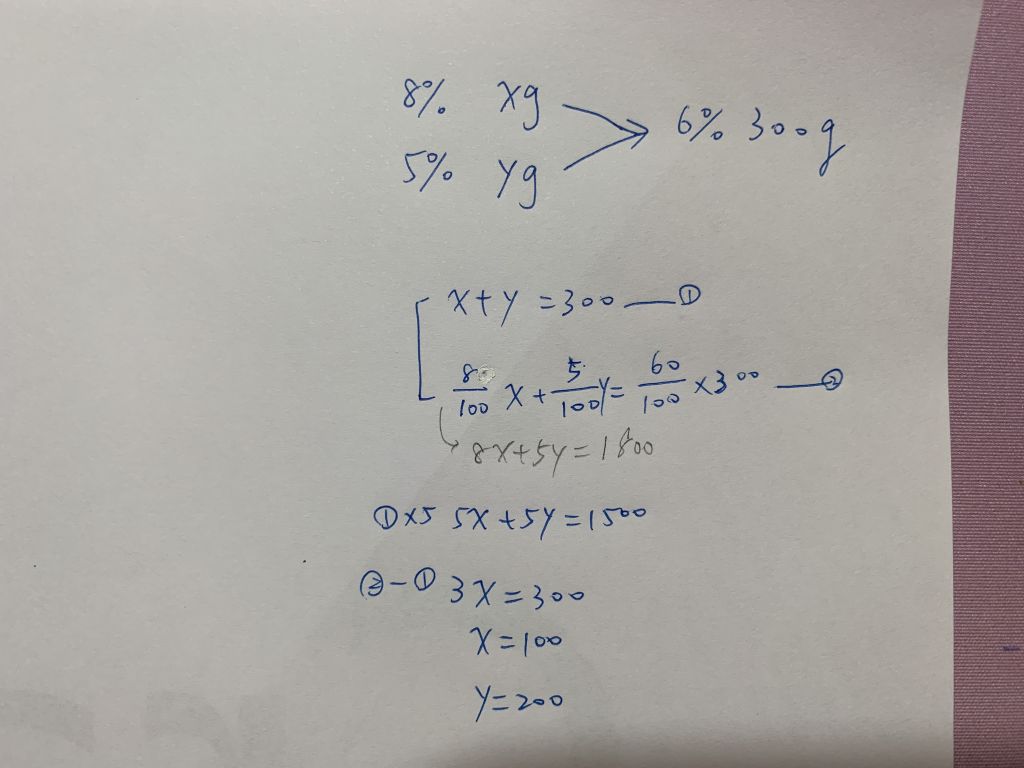 8% xg
5% yg
6% 300g
x+y=300 — ①
8/100 x + 5/100 y = 60/100 × 300 — ②
8x+5y=1800
①×5 5x+5y=1500
②-① 3x=300
x=100
y=200